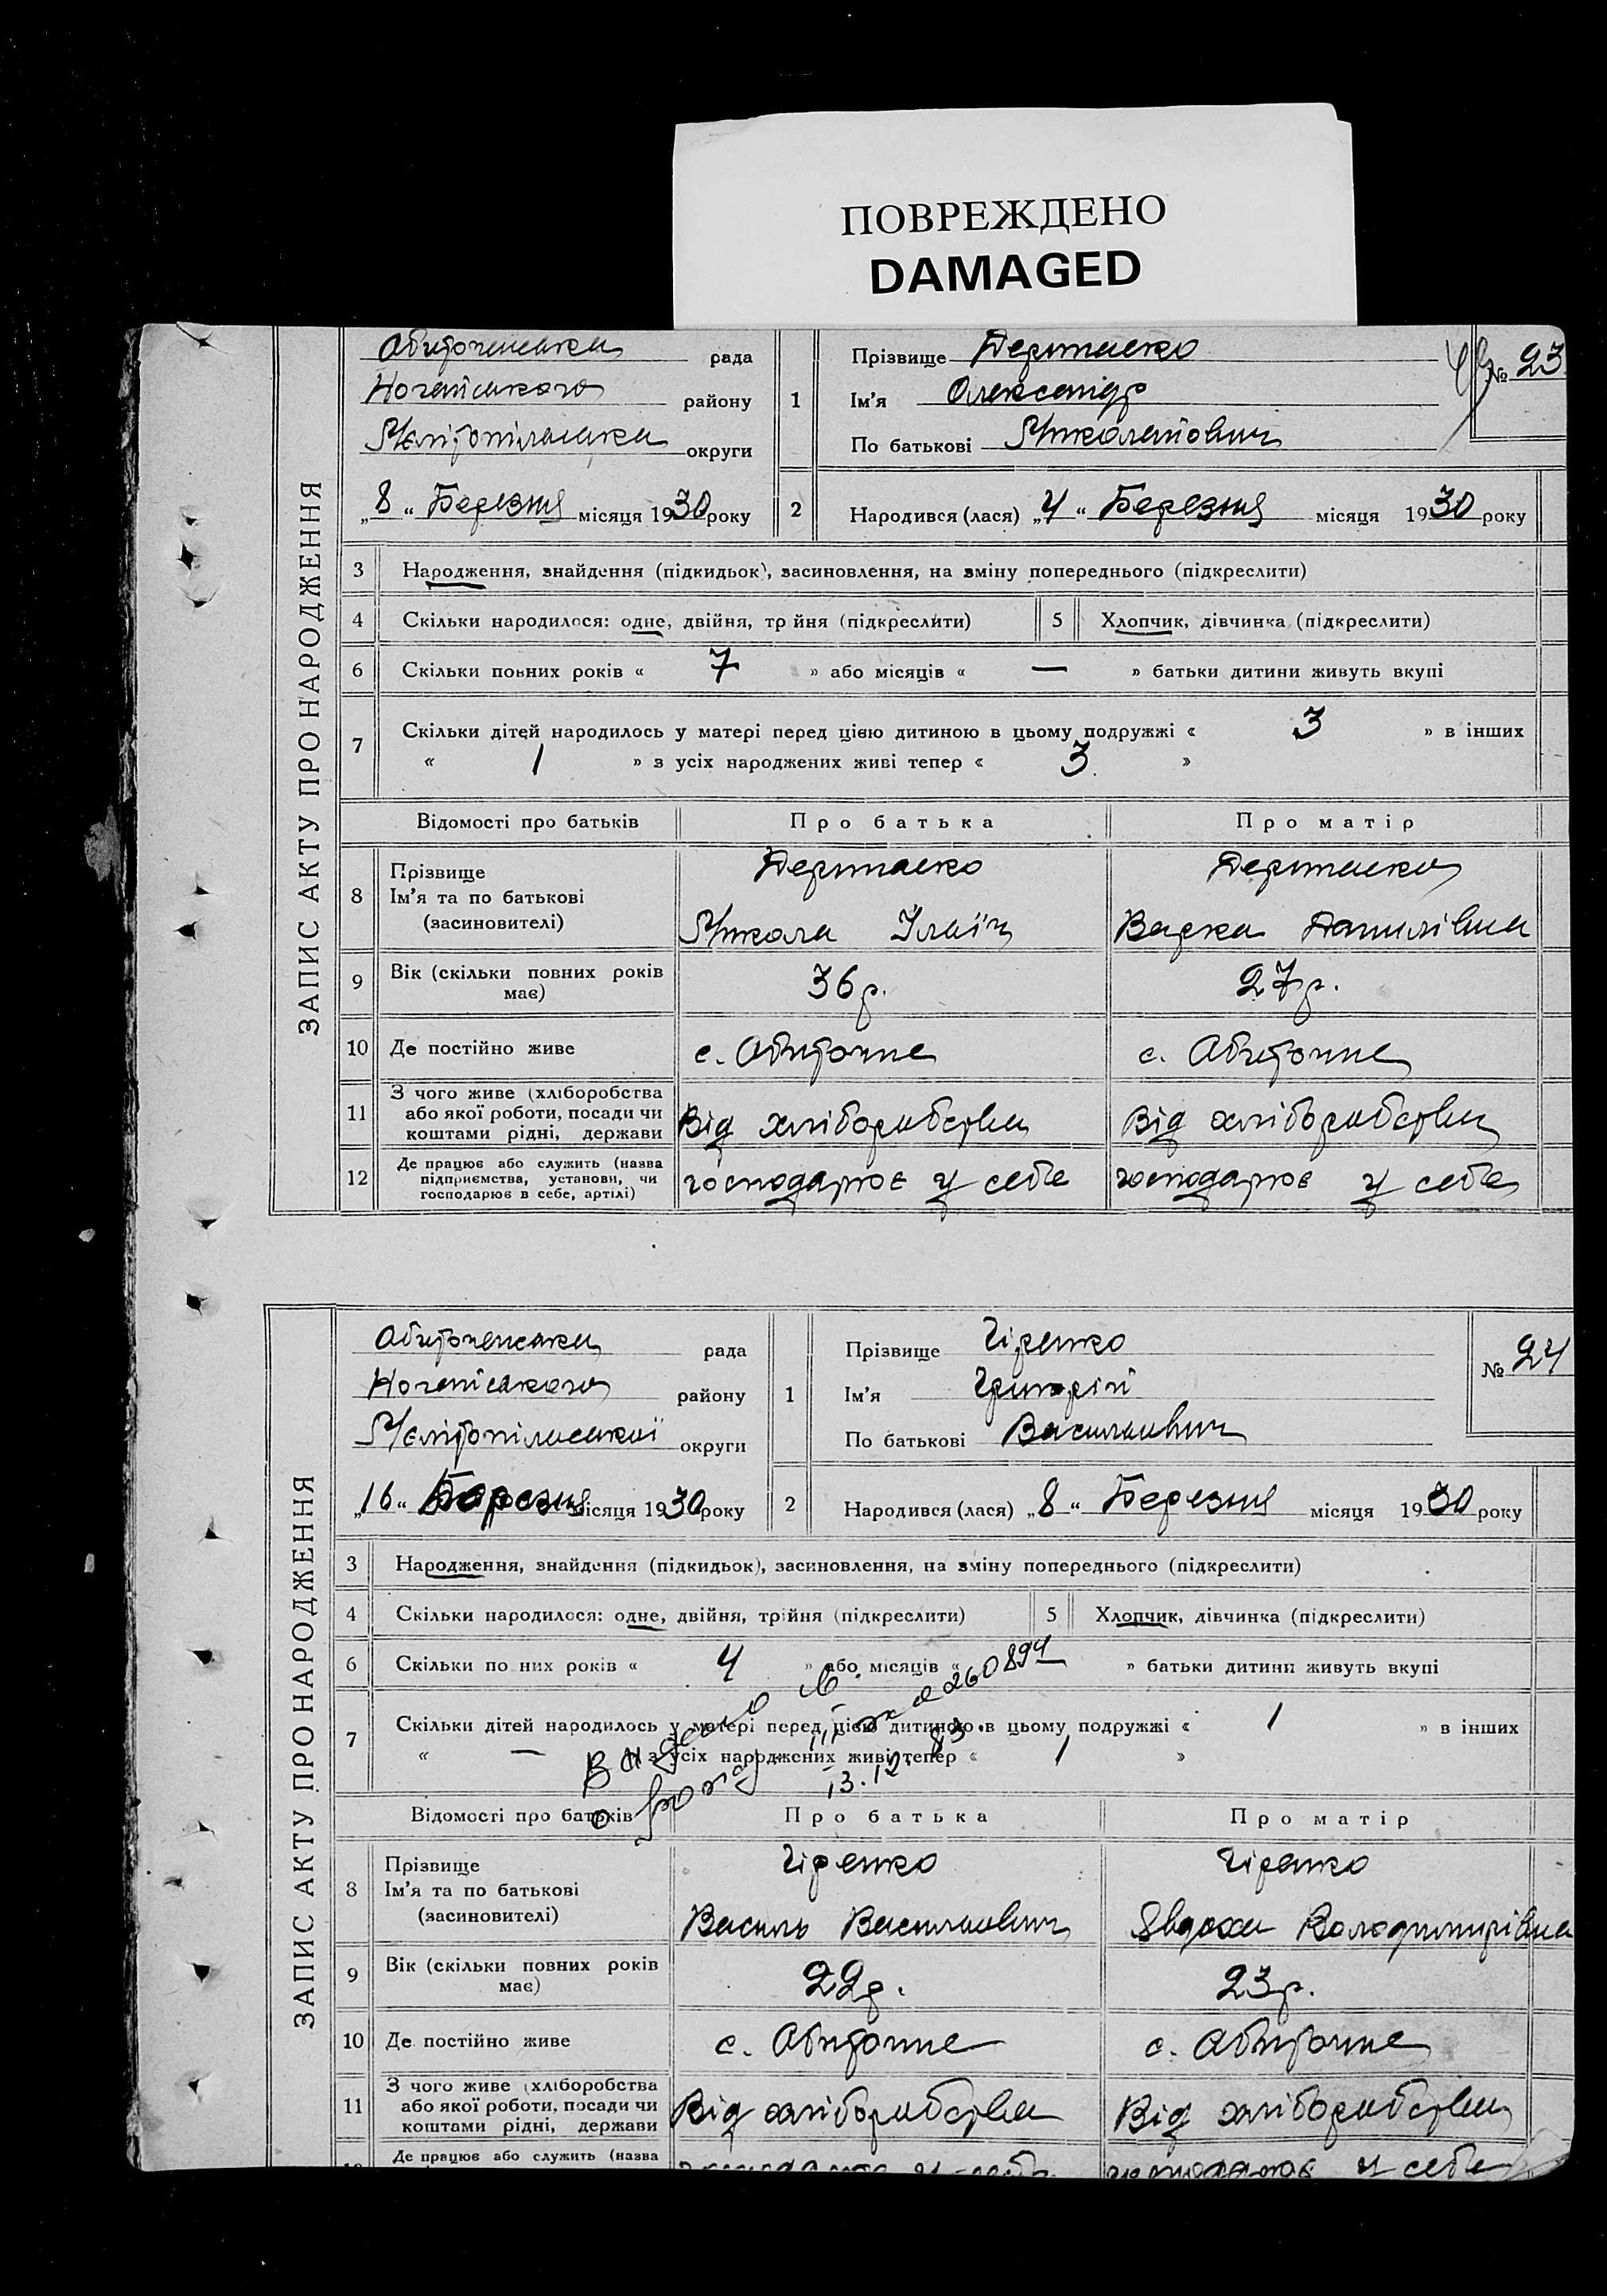 ПОВРЕЖДЕНО
DAMAGED
ЗАПИС АКТУ ПРО НАРОДЖЕННЯ
Обиточенська рада
Ногайського району
Мелітопільська округи
„8“ Березня місяця 1930 року
1
Прізвище
Ім'я Олександр
По батькові Миколайович
№ 23
2
Народився (лася) „4“ Березня місяця 1930 року
3 Народження, знайдення (підкидьок), засиновлення, на зміну попереднього (підкреслити)
4 Скільки народилося: одне, двійня, тр йня (підкреслити) 5 Хлопчик, дівчинка (підкреслити)
6 Скільки повних років « 7 » або місяців « — » батьки дитини живуть вкупі
7 Скільки дітей народилось у матері перед цією дитиною в цьому подружжі « 3 » в інших
« 1 » з усіх народжених живі тепер « 3 »
Відомості про батьків Про батька Про матір
8 Прізвище
Ім'я та по батькові
(засиновителі)
Микола Ілліч
Варка Данилівна
9 Вік (скільки повних років
має)
36 р. 27 р.
10 Де постійно живе с. Обиточне с. Обиточне
11 З чого живе (хліборобства
або якої роботи, посади чи
коштами рідні, держави
Від хліборобства Від хліборобства
12 Де працює або служить (назва
підприємства, установи, чи
господарює в себе, артілі)
господарює у себе господарює у себе
ЗАПИС АКТУ ПРО НАРОДЖЕННЯ
Обиточенська рада
Ногайського району
Мелітопільської округи
„16“ Березня місяця 1930 року
1
Прізвище Гіренко
Ім'я Григорій
По батькові Васильович
№ 24
2
Народився (лася) „8“ Березня місяця 1930 року
3 Народження, знайдення (підкидьок), засиновлення, на зміну попереднього (підкреслити)
4 Скільки народилося: одне, двійня, трійня (підкреслити) 5 Хлопчик, дівчинка (підкреслити)
6 Скільки по них років « 4 » або місяців « — » батьки дитини живуть вкупі
7 Скільки дітей народилось у матері перед цією дитиною в цьому подружжі « 1 » в інших
« — » з усіх народжених живі тепер « 1 »
260894
13.12.83.
Відомості про батьків Про батька Про матір
8 Прізвище
Ім'я та по батькові
(засиновителі)
Гіренко Гіренко
Василь Васильович Явдоха Володимирівна
9 Вік (скільки повних років
має)
22 р. 23 р.
10 Де постійно живе с. Обиточне с. Обиточне
11 З чого живе (хліборобства
або якої роботи, посади чи
коштами рідні, держави
Від хліборобства Від хліборобства
Де працює або служить (назва
господарює у себе господарює у себе